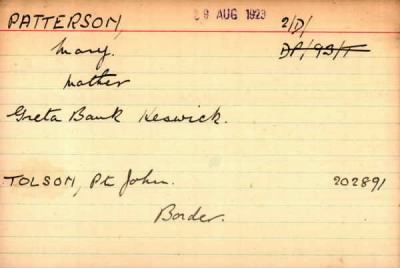 PATTERSON, 29 AUG 1923 2/D/
Mary. DP/9B/T
Mother
Greta Bank Keswick.
TOLSON, Pte John. 202891
Border.